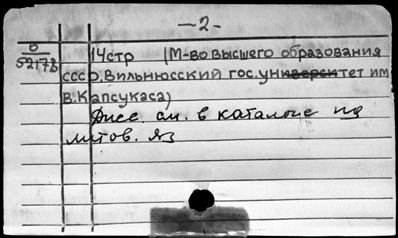 —2—
О
52173
14стр (М-во высшего образования
СССР. Вильнюсский гос. университет им
В. Капсукаса)
Дисс. см. в каталоге на
литов. яз